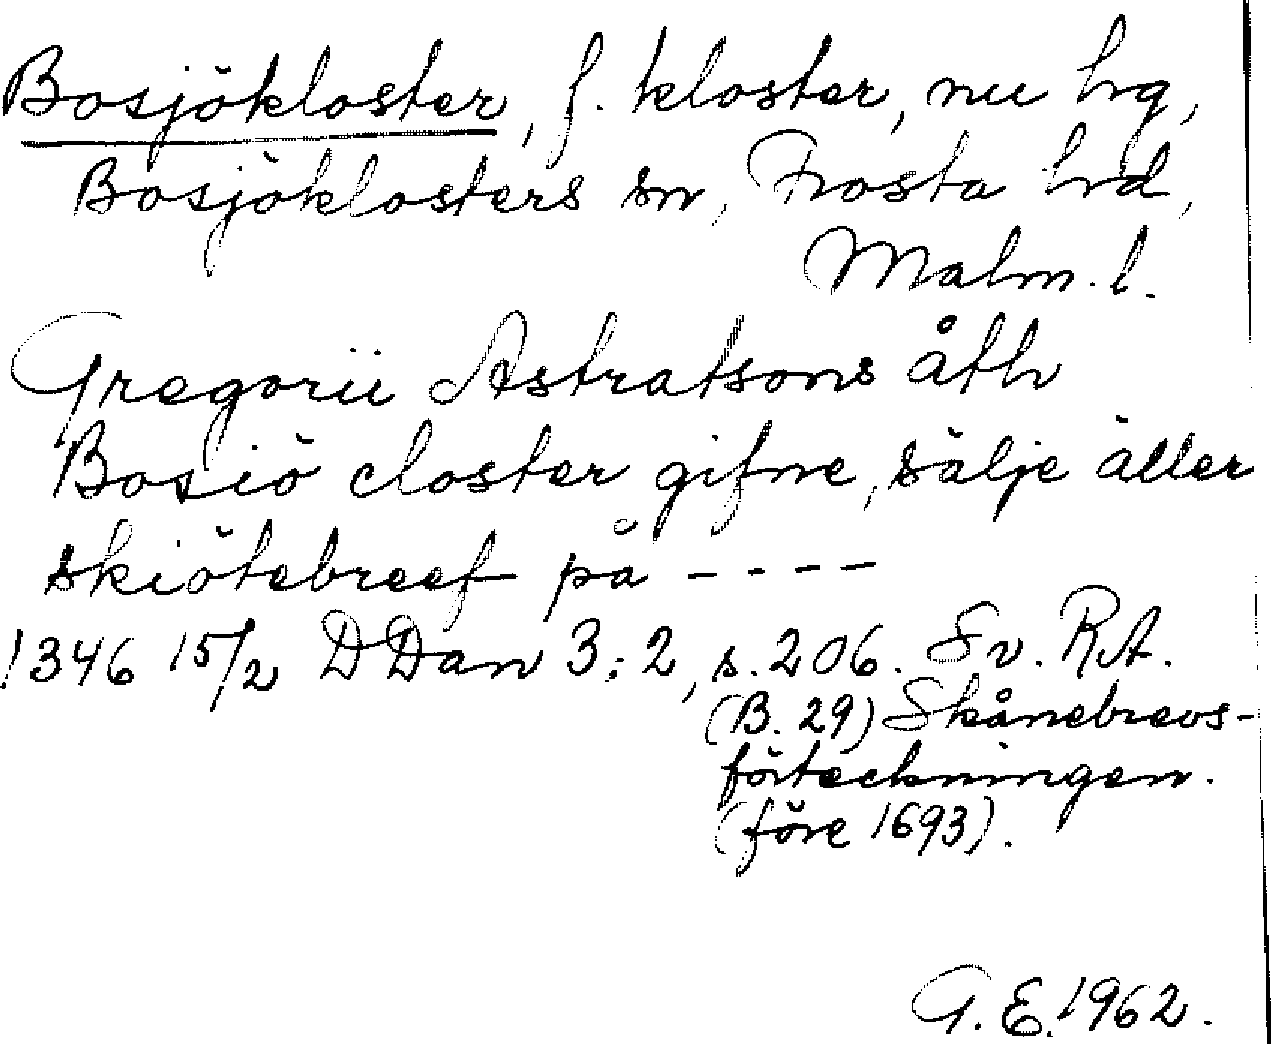 Bosjökloster, f. kloster, nu hg,
Bosjöklosters sn, Frosta hd,
Malm. l.
Gregorii Astratsons åth
Bosiö closter gifne, sälje äller
skiötebreef på ----
1346 15/2 DDan 3:2, s. 206. Sv. RA.
(B. 29) Skånebrevs-
förteckningen.
(före 1693).
G. E. 1962.